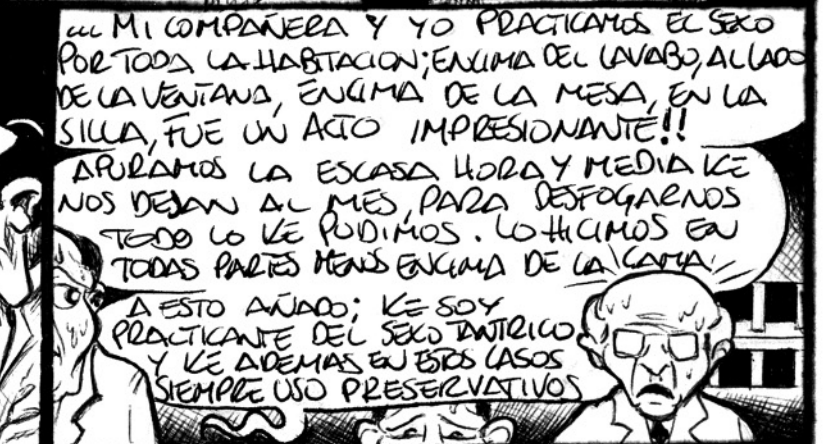 ... MI COMPAÑERA Y YO PRACTICAMOS EL SEXO
POR TODA LA HABITACION; ENCIMA DEL LAVABO, AL LADO
DE LA VENTANA, ENCIMA DE LA MESA, EN LA
SILLA, FUE UN ACTO IMPRESIONANTE!!
APURAMOS LA ESCASA HORA Y MEDIA KE
NOS DEJAN AL MES, PARA DESFOGARNOS
TODO LO KE PUDIMOS. LO HICIMOS EN
TODAS PARTES MENOS ENCIMA DE LA CAMA
A ESTO AÑADO; KE SOY
PRACTICANTE DEL SEXO TANTRICO
Y KE ADEMAS EN ESTOS CASOS
SIEMPRE USO PRESERVATIVOS